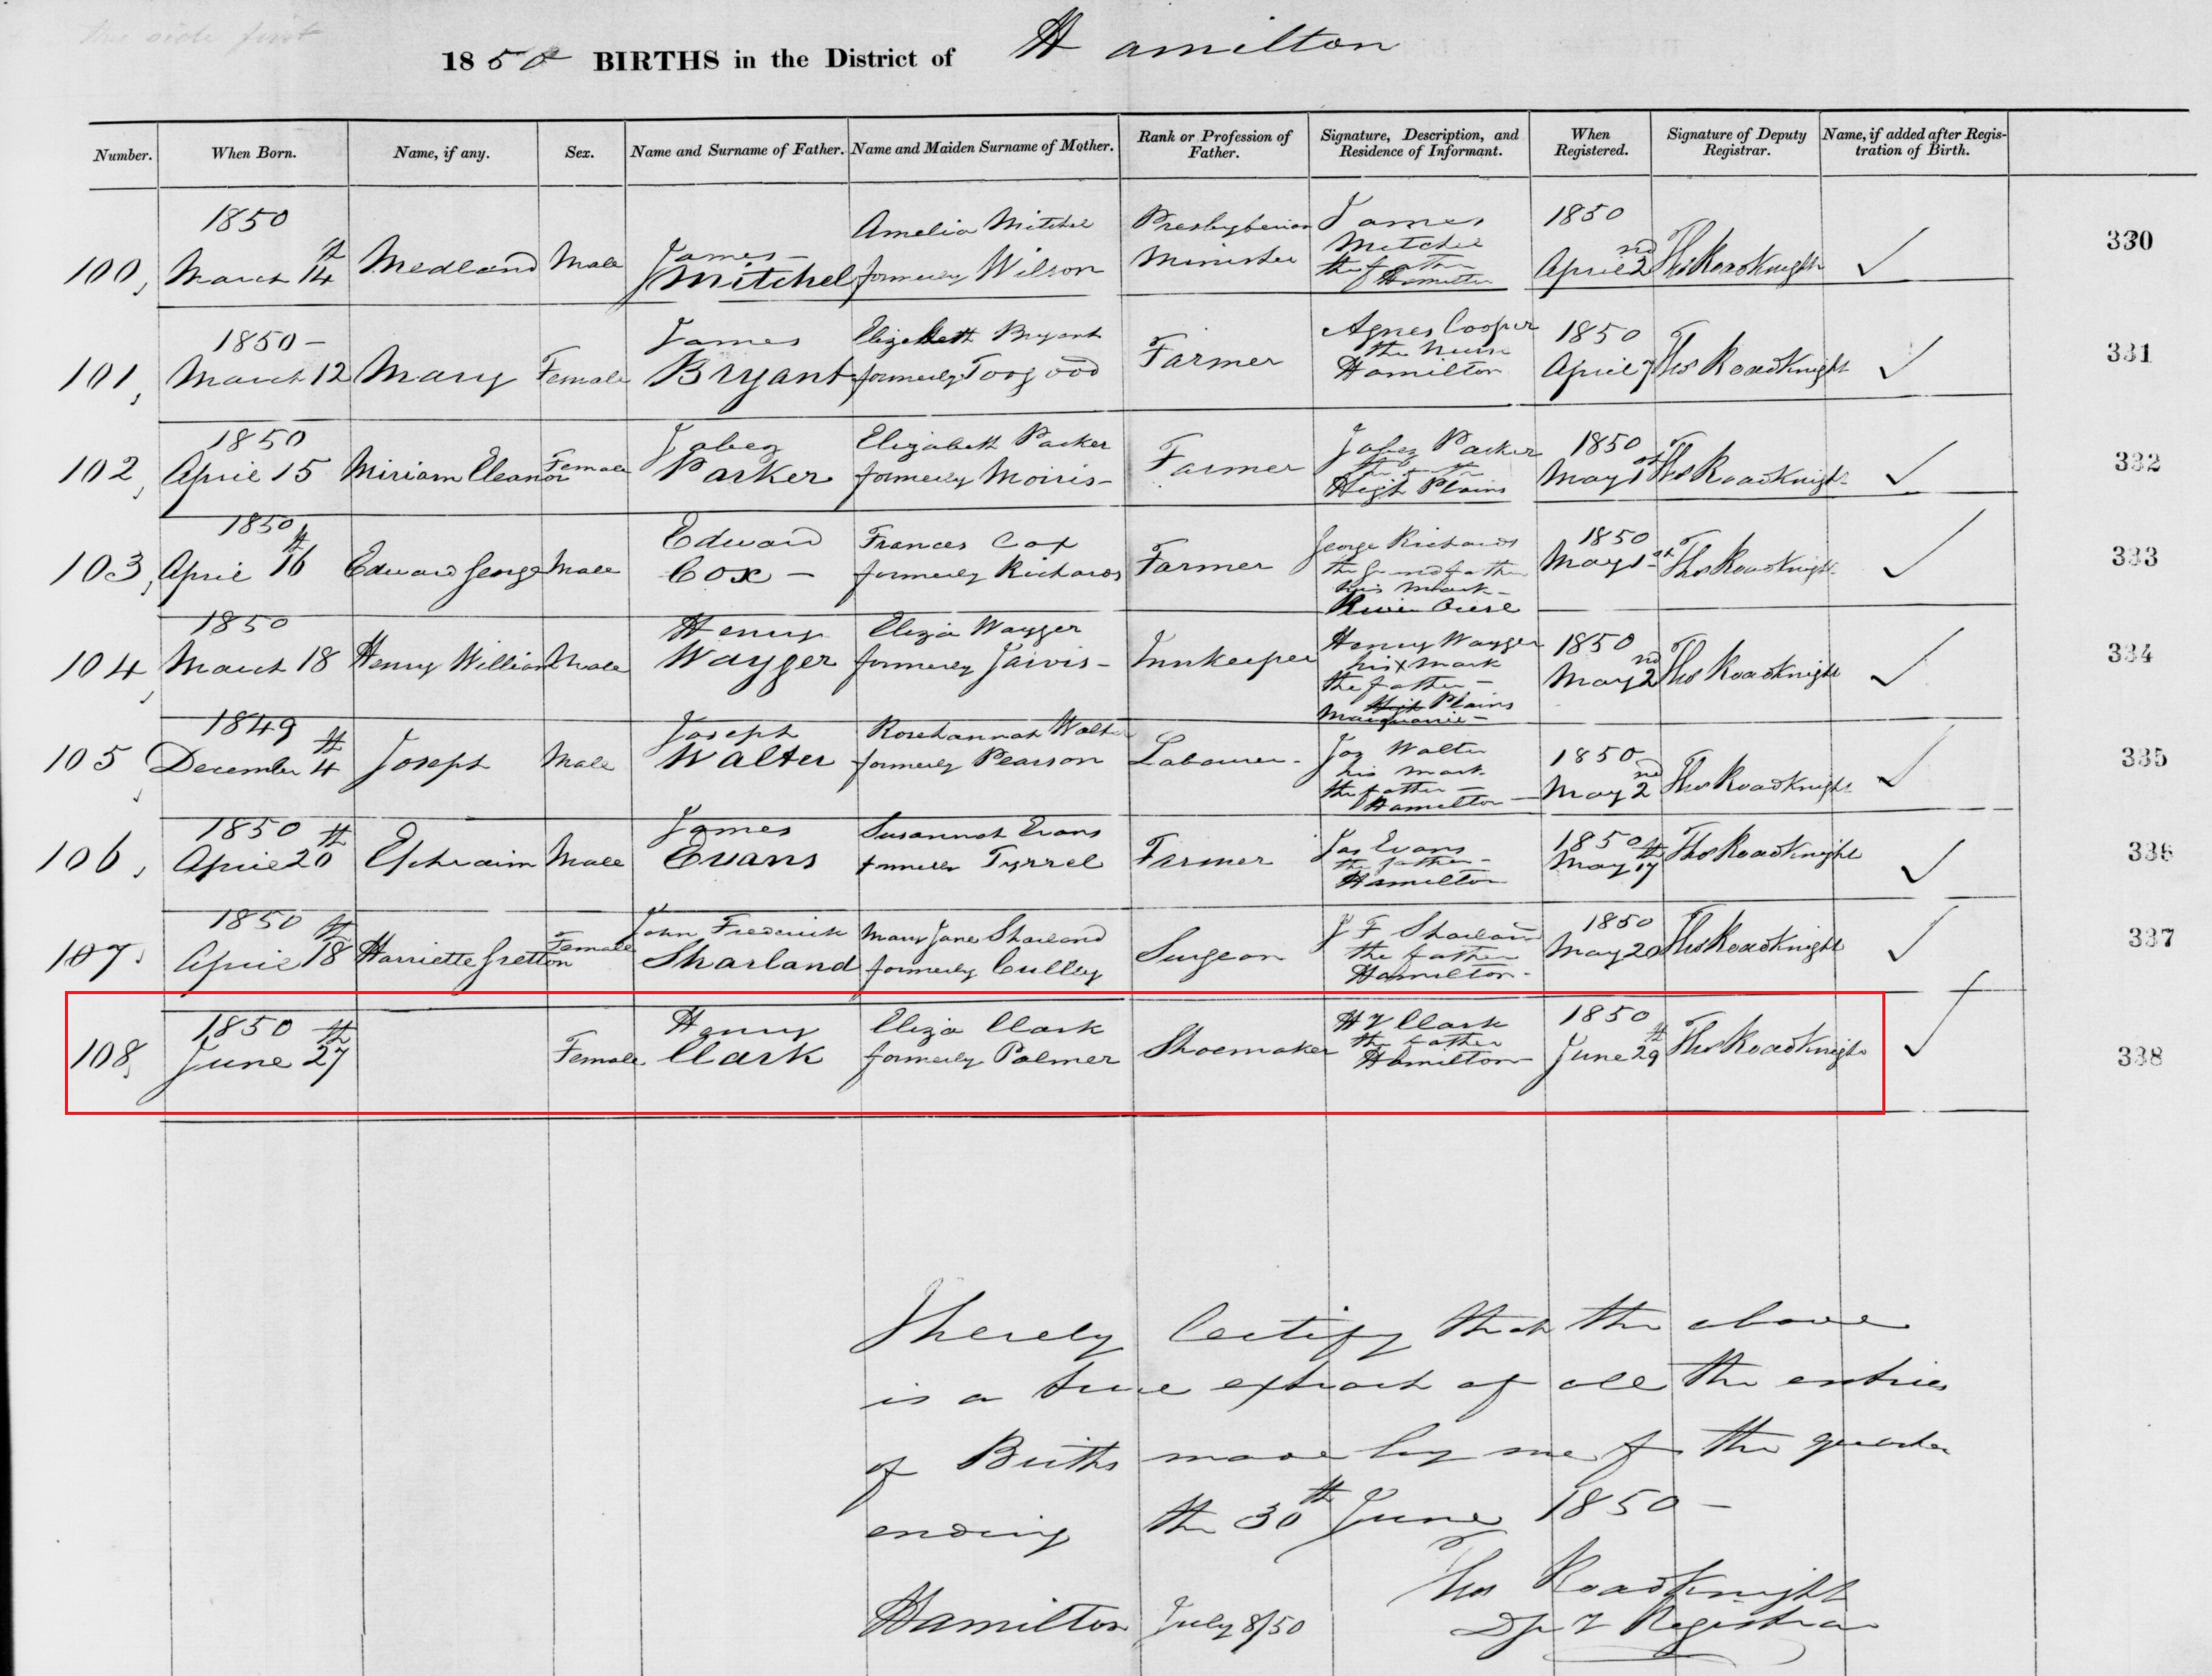 the side first
1850 BIRTHS in the District of Hamilton
Number. When Born. Name, if any. Sex. Name and Surname of Father. Name and Maiden Surname of Mother. Rank or Profession of Father. Signature, Description, and Residence of Informant. When Registered. Signature of Deputy Registrar. Name, if added after Registration of Birth.
100, 1850 March 14th Medland Male James Mitchel Amelia Mitchel formerly Wilson Presbyterian Minister James Mitchel the father Hamilton 1850 April 2nd Thos Roadknight ✓ 330
101, 1850 – March 12 Mary Female James Bryant Elizabeth Bryant formerly Toogood Farmer Agnes Cooper the nurse Hamilton 1850 April 7 Thos Roadknight ✓ 331
102, 1850 April 15 Miriam Eleanor Female Jabez Parker Elizabeth Parker formerly Morris – Farmer Jabez Parker the father High Plains 1850 May 1st Thos Roadknight ✓ 332
103, 1850 April 16th Edward George Male Edward Cox – Frances Cox formerly Richards Farmer George Richards the Grandfather his mark – River Ouse 1850 May 1st Thos Roadknight ✓ 333
104, 1850 March 18 Henry William Male Henry Wayger Eliza Wayger formerly Jarvis – Innkeeper Henry Wayger his x mark the father – High Plains Macquarie – 1850 May 2nd Thos Roadknight ✓ 334
105, 1849 December 4th Joseph Male Joseph Walter Rosehannah Walter formerly Pearson Labourer – Jos Walter his mark the father – Hamilton – 1850 May 2nd Thos Roadknight ✓ 335
106, 1850 April 20th Ephraim Male James Evans Susannah Evans formerly Tyrrel Farmer Jas Evans the father – Hamilton 1850 May 17th Thos Roadknight ✓ 336
107. 1850 April 18th Harriette Gretton Female John Frederick Sharland Mary Jane Sharland formerly Culley Surgeon J F Sharland the father Hamilton – 1850 May 20 Thos Roadknight ✓ 337
108, 1850 June 27th Female Henry Clark Eliza Clark formerly Palmer Shoemaker Hy Clark the father Hamilton – 1850 June 29th Thos Roadknight ✓ 338
I hereby Certify that the above
is a true extract of all the entries
of Births made by me for the quarter
ending the 30th June 1850 –
Thos Roadknight
Hamilton July 8/50 Dpy Registrar